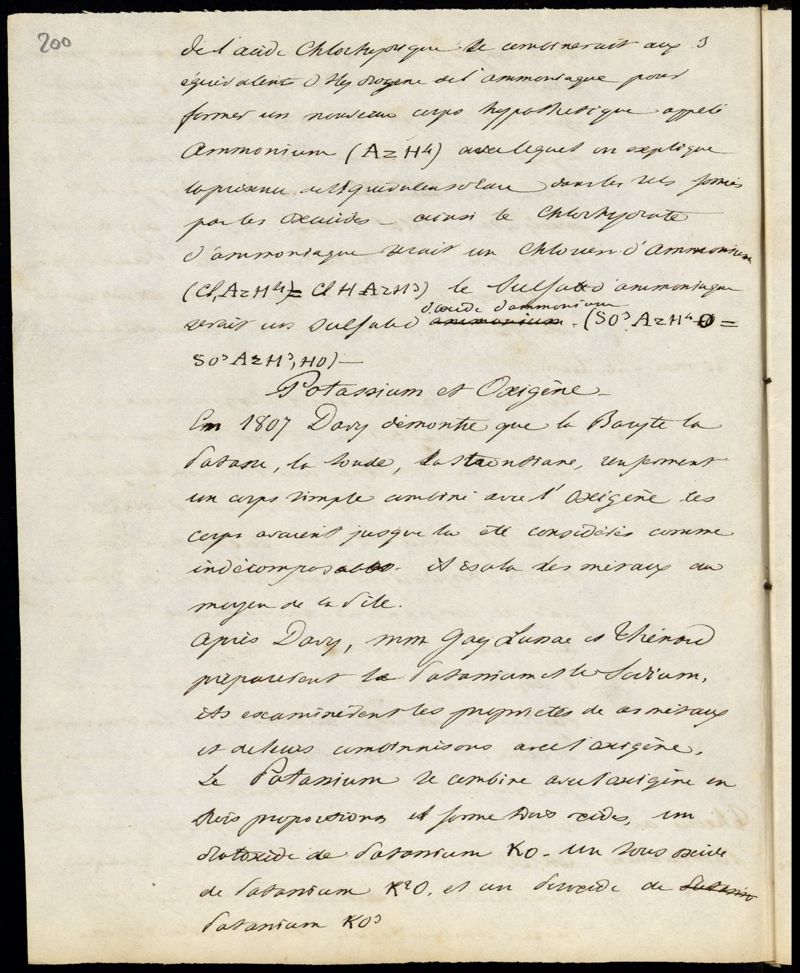 200
de l'acide Chlorhydrique se combinerait aux 3
équivalents d'Hydrogène de l'ammoniaque pour
former un nouveau corps hypothétique appelé
Ammonium (AzH4) avec lequel on explique
la présence de l'équivalent d'eau dans les sels formés
par les Oxacides - ainsi le Chlorhydrate
d'ammoniaque serait un Chlorure d'Ammonium
(Cl, AzH4) = ClH AzH3) le Sulfate d'ammoniaque
d'oxide d'ammonium
serait un sulfate ammonium. (SO3 AzH4O =
SO3 AzH3, HO) —
Potassium et Oxigène -
Em 1807 Davy démontre que la Baryte la
Potasse, la soude, la strontiane, renferment
un corps simple combiné avec l'Oxigène les
corps avaient jusque là été considérés comme
indécomposables. il isola des métaux au
moyen de la Pile.
Après Davy, mm Gay Lussac et Thénard
préparèrent le Potassium et le Sodium,
ils examinèrent les propriétés de ces métaux
et de leurs combinaisons avec l'oxigène.
Le Potassium se combine avec l'oxigène en
trois proportions et forme trois oxides, un
Protoxide de Potassium KO - un sous oxide
de Potassium K2O, et un peroxide de
Potassium KO3